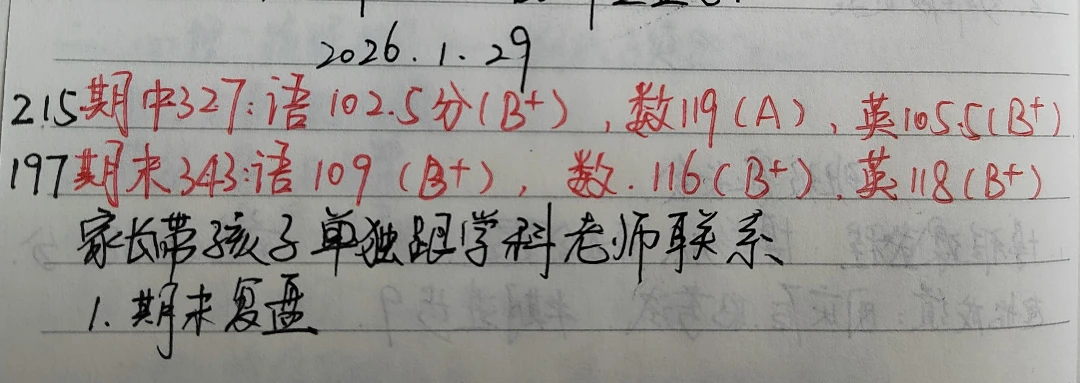 2026.1.29
215期中327:语102.5分(B+),数119(A),英105.5(B+)
197期末343:语109(B+),数.116(B+),英118(B+)
家长带孩子单独跟学科老师联系
1.期末复盘